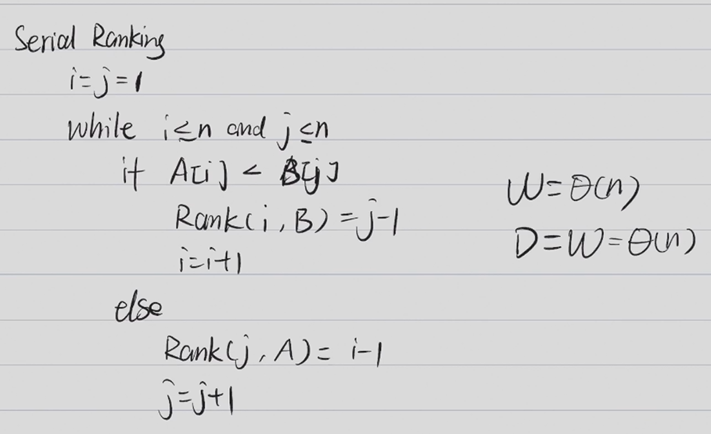 Serial Ranking
i=j=1
while i≤n and j≤n
if A[i] < B[j]
Rank(i, B) = j-1
i=i+1
else
Rank(j, A) = i-1
j=j+1
W=Θ(n)
D=W=Θ(n)